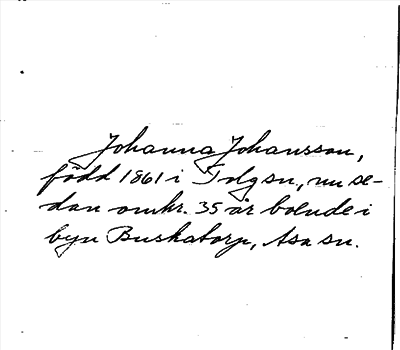 Johanna Johansson,
född 1861 i Tolgsn., nu se-
dan omkr. 35 år boende i
byn Buskatorp, Asa sn.